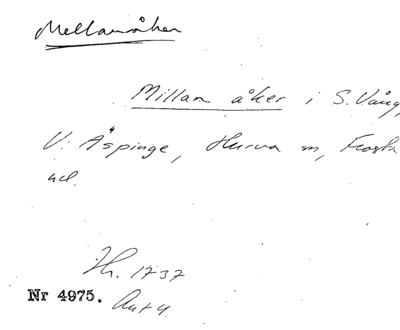 Mellanåker
Millan åker i S. Vång,
V. Äspinge, Hurva sn, Frosta
hd.
Hr. 1737
Nr 4975. Akt 4.